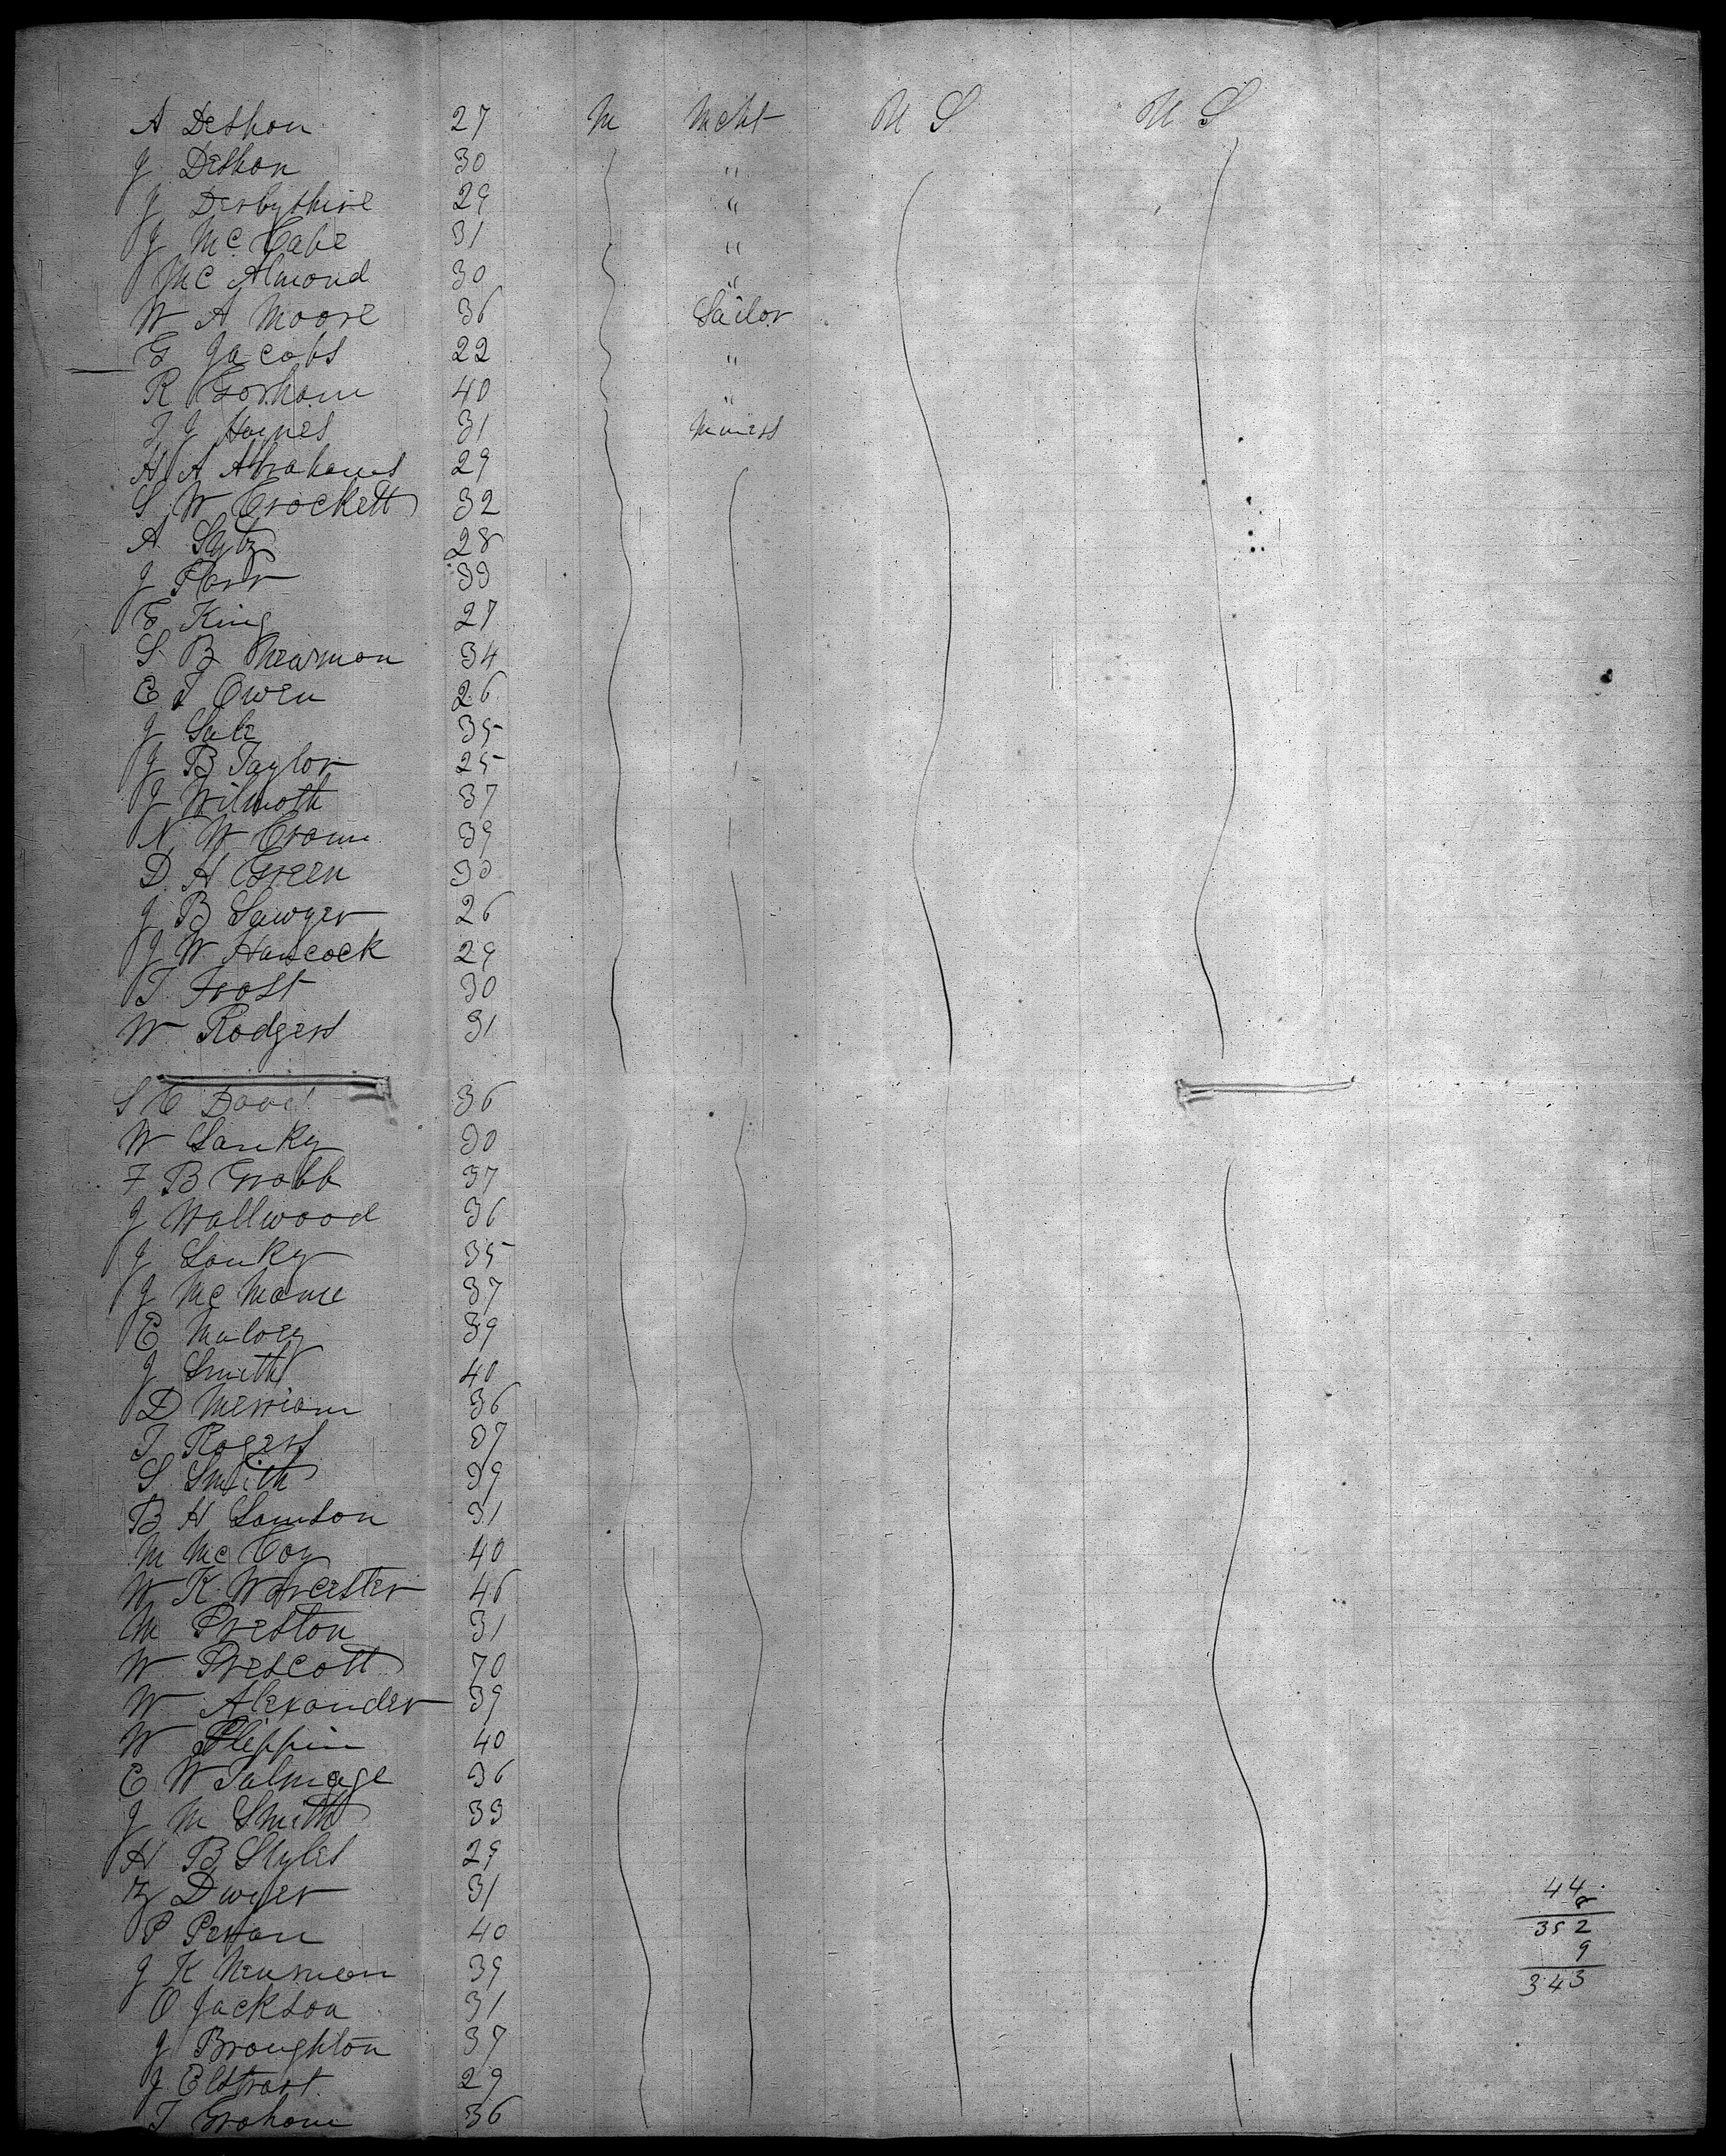 A Deshon 27 M Mcht U S U S
J Deshon 30 "
J Derbyshire 29 "
J Mc Cabe 31 "
Mc Almond 30 "
W A Moore 36 Sailor
G Jacobs 22 "
R Gorham 40 "
J J Haynes 31 Miners
H A Abrahams 29
S W Crockett 32
A 28
J 33
E King 27
S B Newman 34
C T Owen 26
J Sale 35
J B Taylor 25
J Wilmoth 37
N W Crom 39
D H Green 30
J B Sawyer 26
J W Hancock 29
T Frost 30
W Rodgers 31
S C 36
W Sanky 30
F B Grabb 37
J Wallwood 36
J Sanky 35
J Mc Mame 37
C Maloey 39
J Smith 40
D Merriam 36
T Rogers 37
S Smith 39
B H Samson 31
M Mc Coy 40
W K Worcester 46
M Preston 31
W Prescott 70
W Alexander 39
W Flippin 40
C W Talmage 36
J M Smith 33
H B Styles 29
Z Dwyer 31
P 40
J K Newman 39
O Jackson 31
J Broughton 37
J Elstrart 29
T Graham 36
44
8
352
9
343